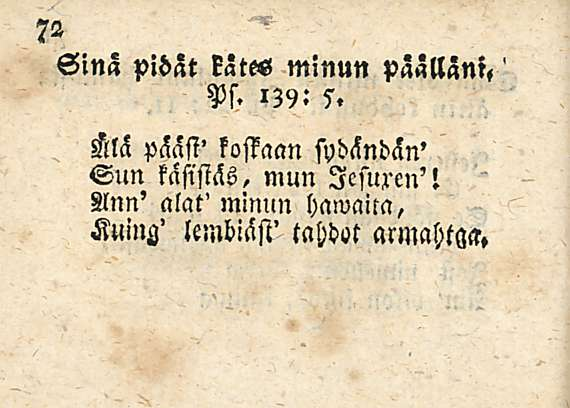 72
Sinä pidät kätes minun päälläni.
Ps. 139: 5.
Älä pääst' koskaan sydändän'
Sun käsistäs, mun Jesuxen'!
Ann' alat' minun hawaita,
Kuing' lembiäst' tahdot armahtaa.